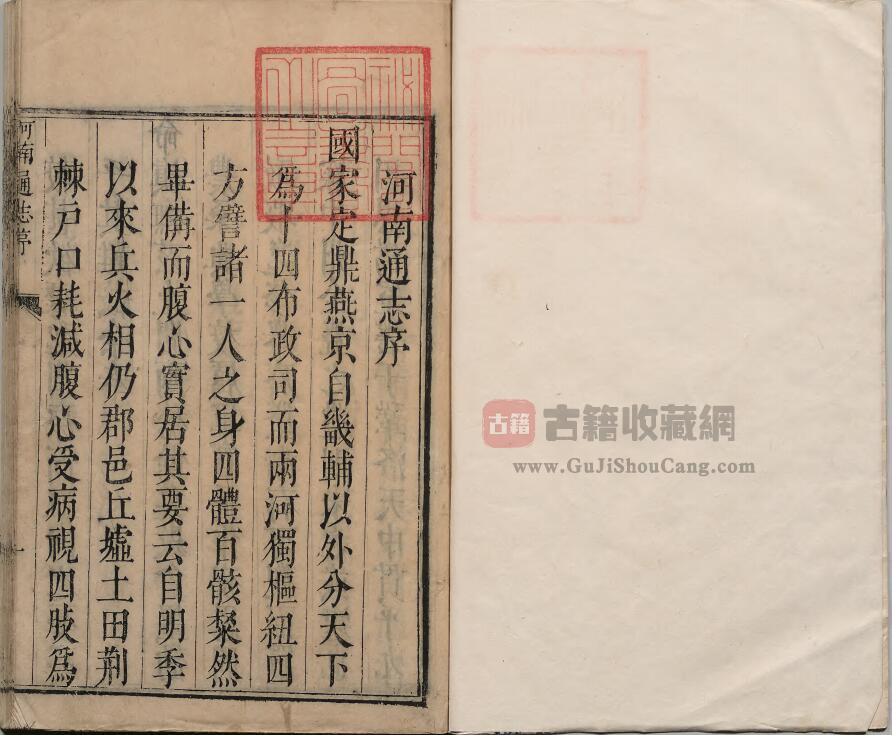 河南通志序
國家定鼎燕京自畿輔以外分天下
爲十四布政司而兩河獨樞紐四
方譬諸一人之身四體百骸粲然
畢備而腹心實居其要云自明季
以來兵火相仍郡邑丘墟土田荆
棘戸口耗減腹心受病視四肢爲
河南通志序
一
古籍
古籍收藏網
www.GuJiShouCang.com